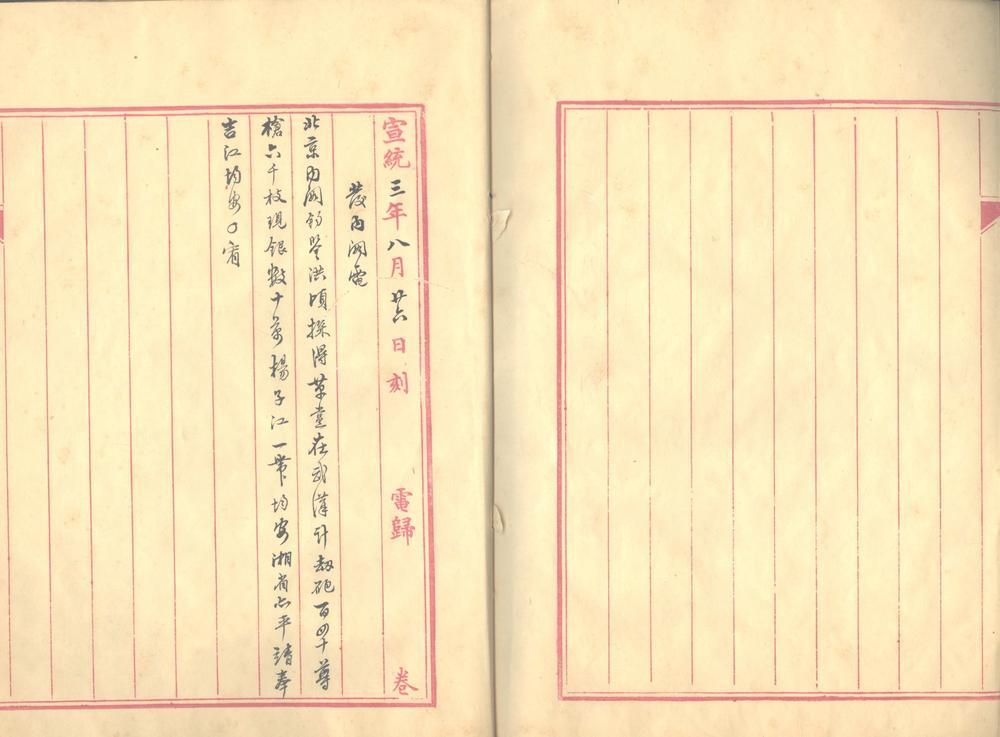 宣統三年八月廿六日刻 電歸 卷
發內閣電
北京內閣鈞鑒洪頃探得革黨在武漢計劫砲百四十尊
槍六千枝現銀數十萬楊子江一帶均安湘省亦平靖奉
吉江均安○宥